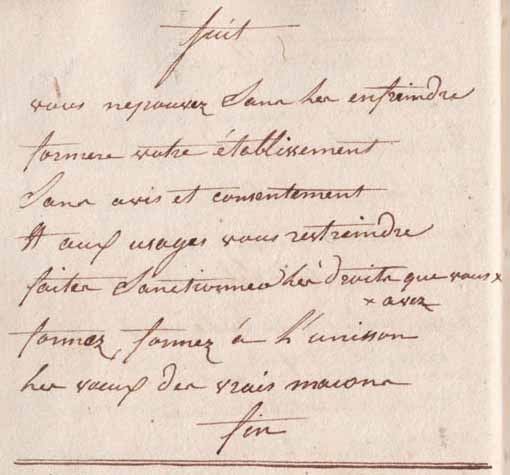 suit
vous ne pouvez sans les enfreindre
former votre établissement
sans avis et consentement
et aux usages vous restreindre
faites sanctionner les droits que vous x
x avez
formez, formez á l'unisson
les voeux des vrais macons
fin